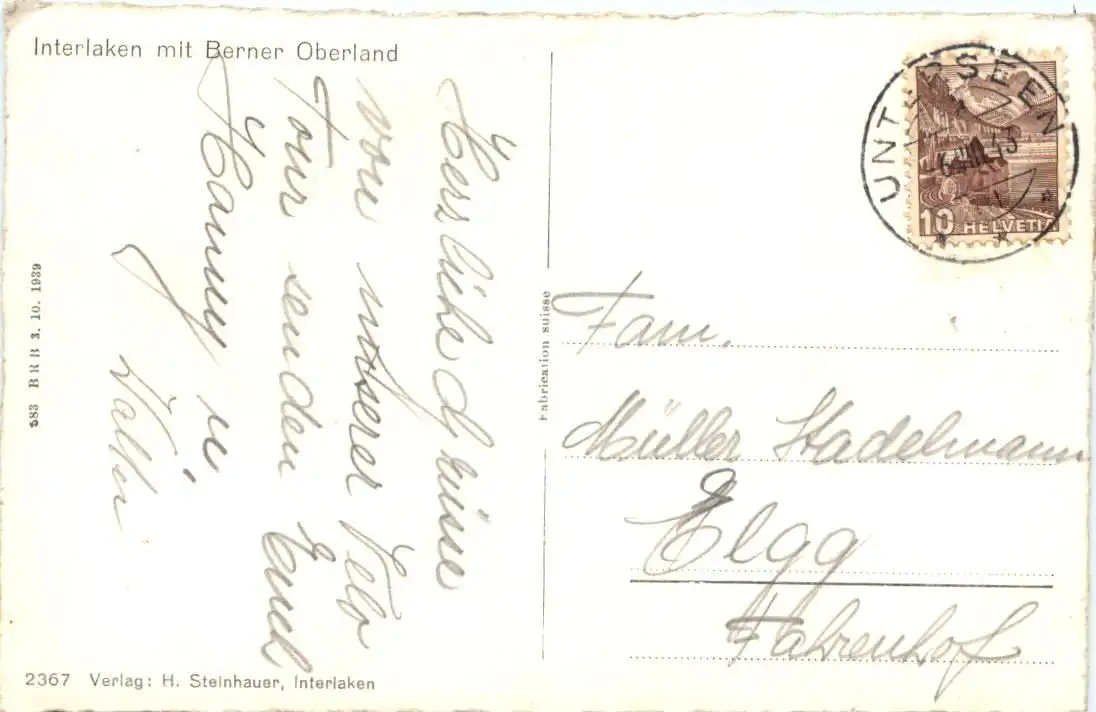 Interlaken mit Berner Oberland
Herzliche Grüsse
von unserer Velo
Tour senden Euch
Hanny u
Walter
UNTERSEEN
10 HELVETIA
Fabrication suisse
Fam.
Müller Stadelmann
Elgg
Fahrenhof
583 BRB 3. 10. 1939
2367 Verlag: H. Steinhauer, Interlaken